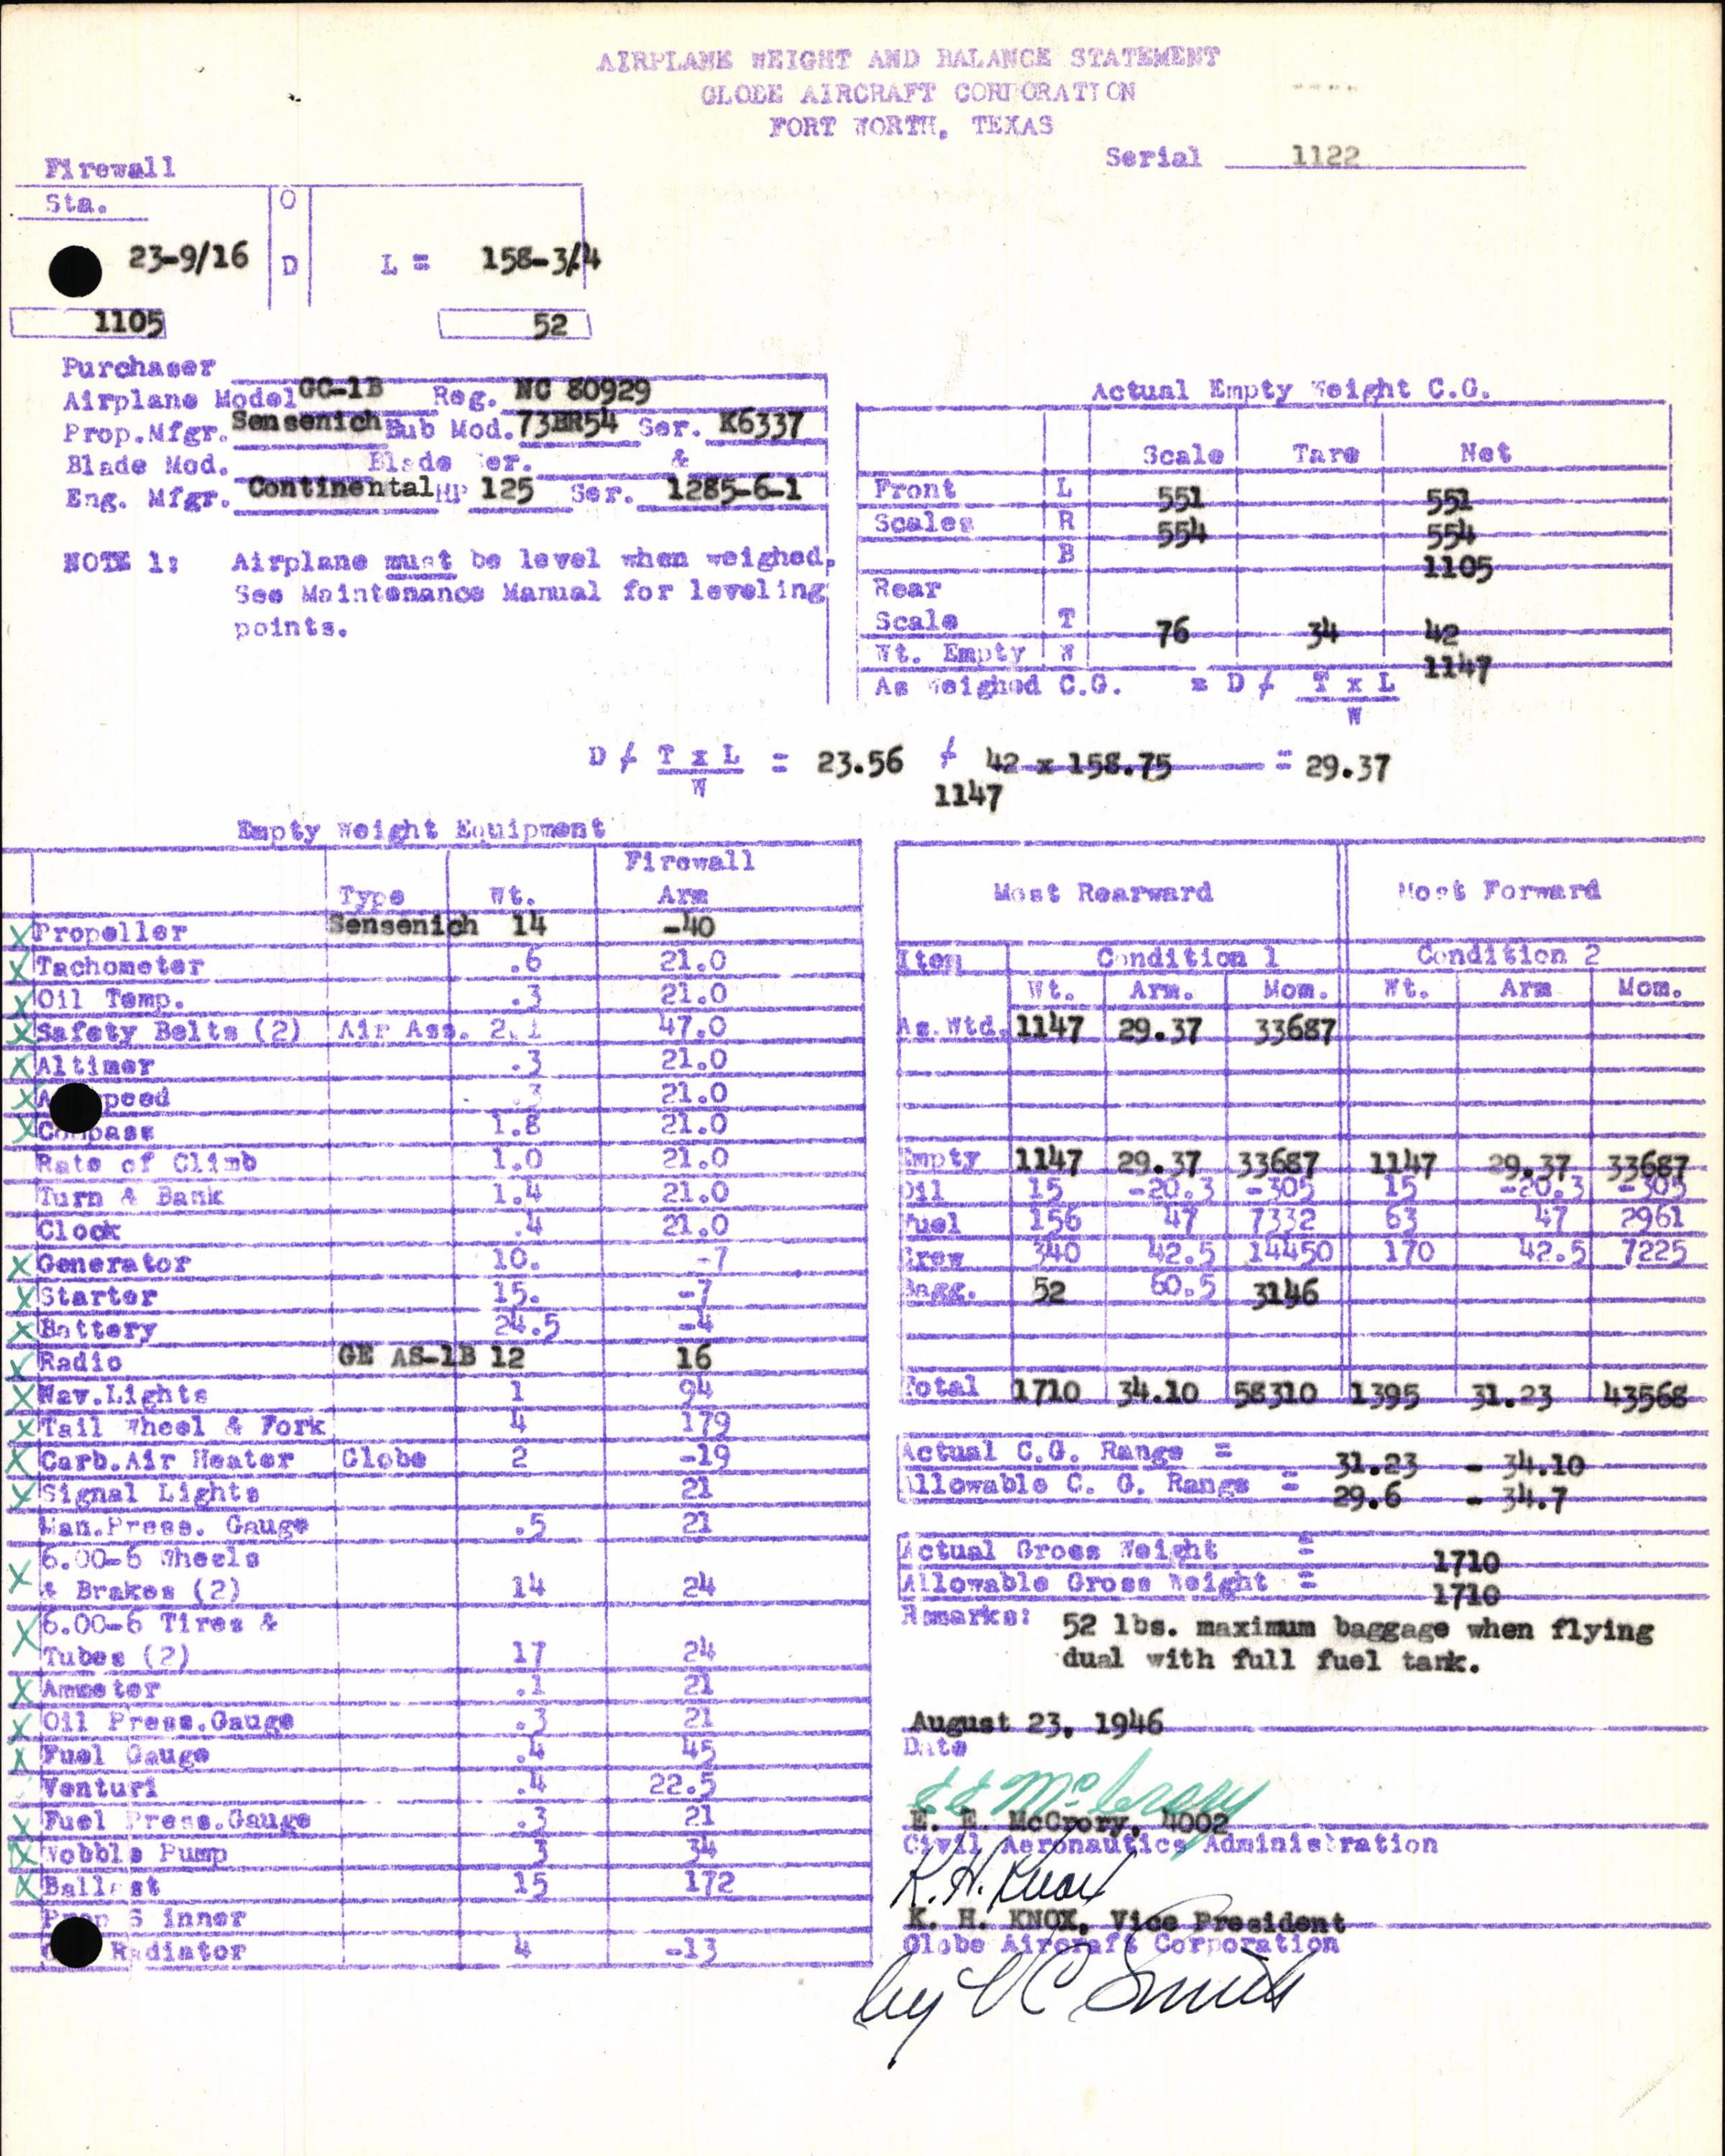 AIRPLANE WEIGHT AND BALANCE STATEMENT
GLOBE AIRCRAFT CORPORATION
FORT WORTH, TEXAS
Serial 1122
Firewall
Sta. O
23-9/16 D L = 158-3/4
1105 52
Purchaser
Airplane Model GC-1B Reg. NC 80929
Prop.Mfgr. Sensenich Hub Mod. 73BR54 Ser. K6337
Blade Mod. Blade Ser. &
Eng. Mfgr. Continental HP 125 Ser. 1285-6-1
NOTE 1: Airplane must be level when weighed.
See Maintenance Manual for leveling
points.
Actual Empty Weight C.G.
Scale Tare Net
Front L 551 551
Scales R 554 554
B 1105
Rear
Scale T 76 34 42
Wt. Empty W 1147
As Weighed C.G. = D ⁄ T x L
W
D ⁄ T x L = 23.56 ⁄ 42 x 158.75 = 29.37
W 1147
Empty Weight Equipment
Firewall
Type Wt. Arm
X Propeller Sensenich 14 -40
X Tachometer .6 21.0
X Oil Temp. .3 21.0
X Safety Belts (2) Air Ass. 2.1 47.0
X Altimer .3 21.0
X A peed .3 21.0
X Compass 1.8 21.0
Rate of Climb 1.0 21.0
Turn & Bank 1.4 21.0
Clock .4 21.0
X Generator 10. -7
X Starter 15. -7
X Battery 24.5 -4
X Radio GE AS-1B 12 16
X Nav.Lights 1 94
X Tail Wheel & Fork 4 179
X Carb.Air Heater Globe 2 -19
X Signal Lights 21
Man.Press. Gauge .5 21
6.00-6 Wheels
X & Brakes (2) 14 24
X 6.00-6 Tires &
Tubes (2) 17 24
X Ammeter .1 21
X Oil Press.Gauge .3 21
X Fuel Gauge .4 45
Venturi .4 22.5
X Fuel Press.Gauge .3 21
X Wobble Pump 3 34
X Ballast 15 172
Prop S inner
Radiator 4 -13
Most Rearward Most Forward
Item Condition 1 Condition 2
Wt. Arm. Mom. Wt. Arm Mom.
As.Wtd. 1147 29.37 33687
Empty 1147 29.37 33687 1147 29.37 33687
Oil 15 -20.3 -305 15 -20.3 -305
Fuel 156 47 7332 63 47 2961
Crew 340 42.5 14450 170 42.5 7225
Bagg. 52 60.5 3146
Total 1710 34.10 58310 1395 31.23 43568
Actual C.G. Range = 31.23 - 34.10
Allowable C. G. Range = 29.6 - 34.7
Actual Gross Weight = 1710
Allowable Gross Weight = 1710
Remarks: 52 lbs. maximum baggage when flying
dual with full fuel tank.
August 23, 1946
Date
E E McCrory
E. E. McCrory, 4002
Civil Aeronautics Administration
K.H. Knox
K. H. KNOX, Vice President
Globe Aircraft Corporation
by V C Smith